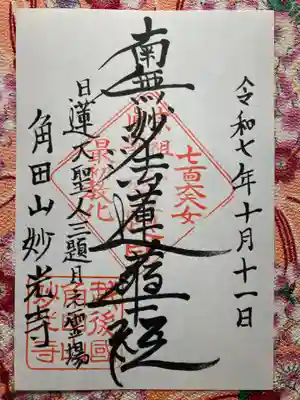 令和七年十月十一日
南無妙法蓮華経
七面天女
最初教化
日蓮大聖人三題目之霊場
角田山妙光寺
越後國
角田山
妙光寺